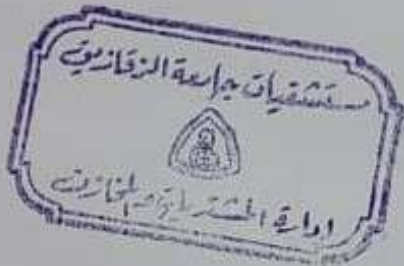 مستشفيات جامعة الزقازيق
ادارة المشتريات والمخازن